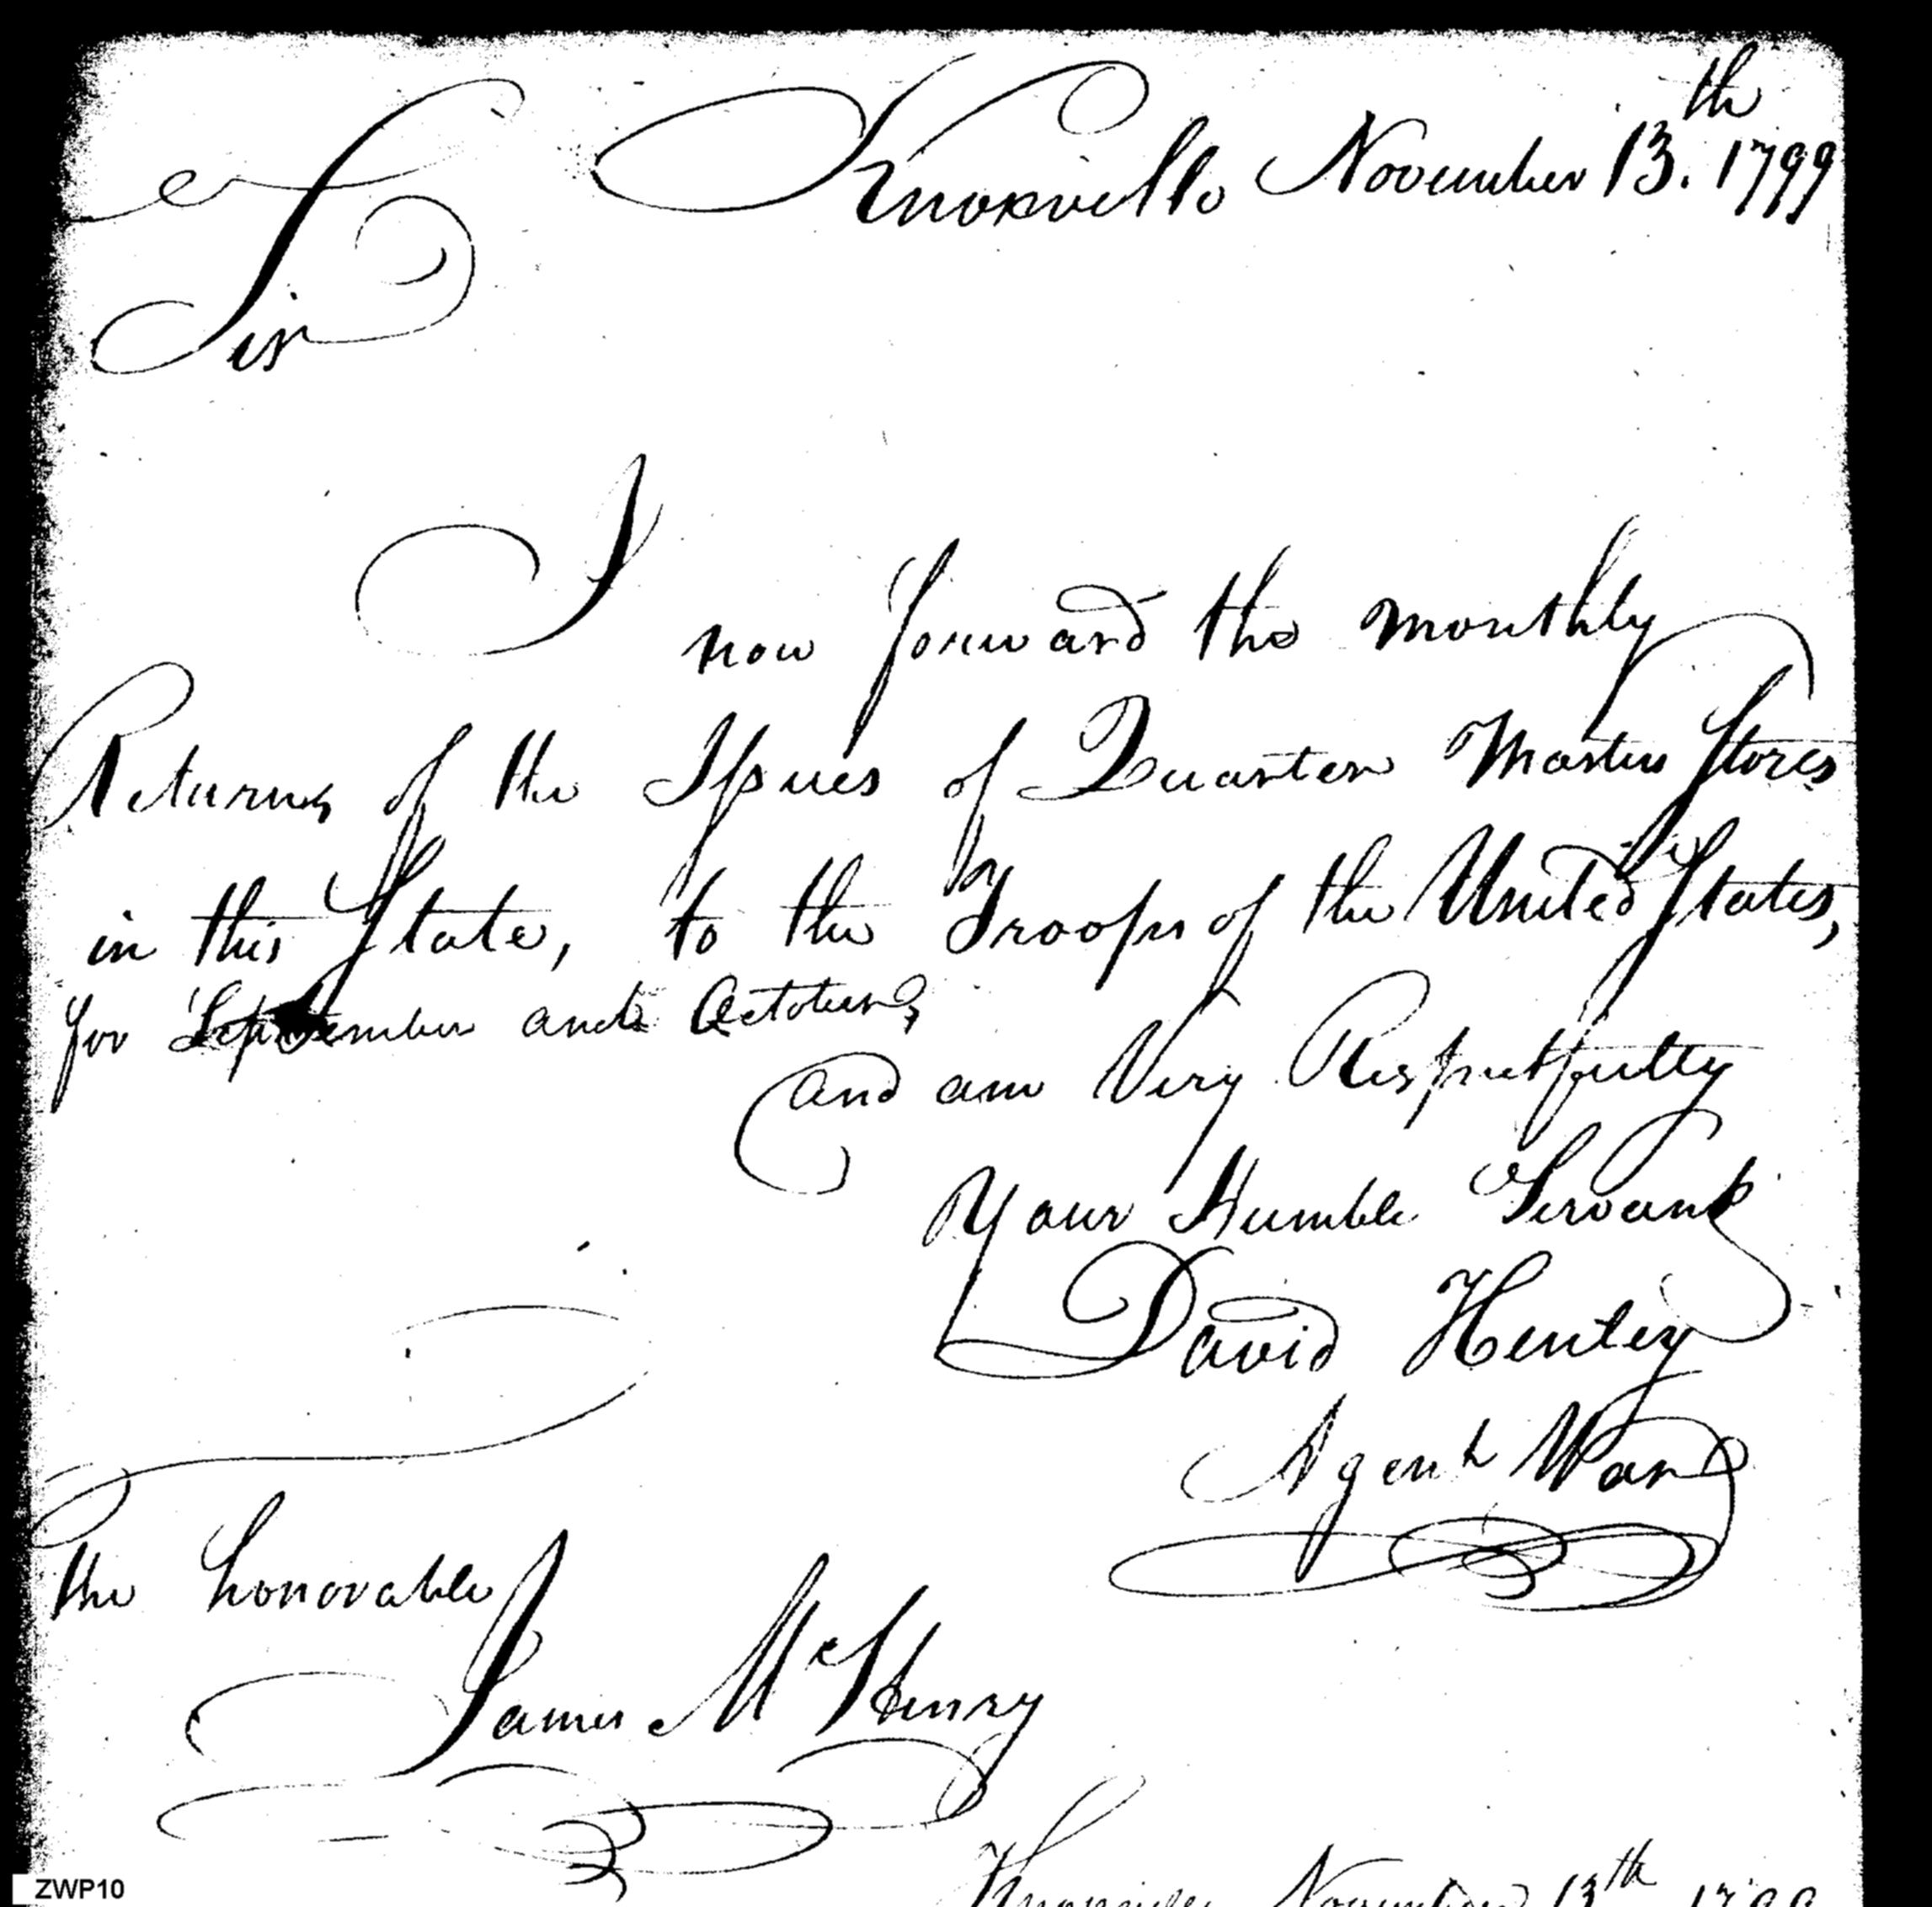 Knoxville November 13.th 1799
Sir
I now forward the monthly
Returns of the Issues of Quarter Master Stores
in this State, to the Troops of the United States,
for September and October,
and am Very Respectfully
Your Humble Servant
David Henley
Agent War
the honorable
James McHenry
Knoxville November 13th 1799
ZWP10